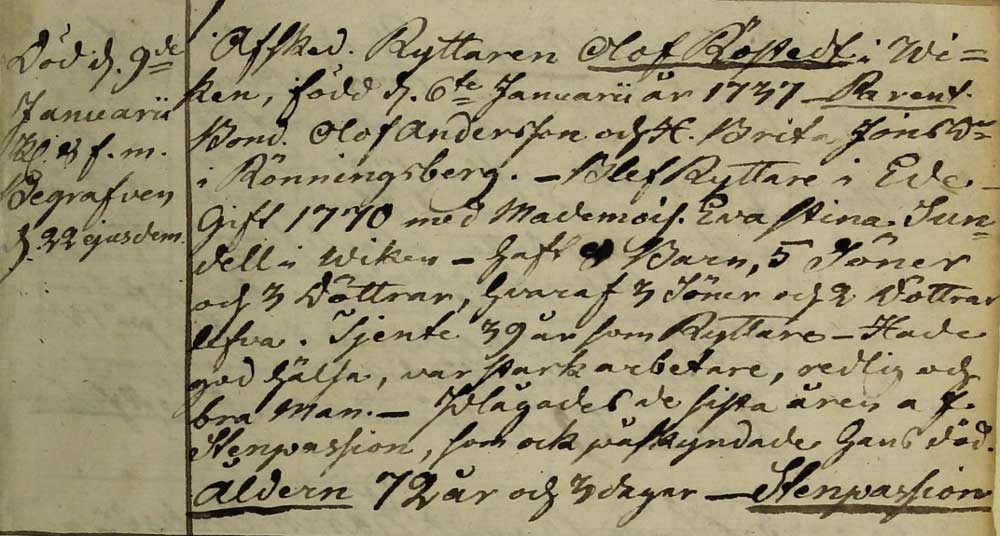 Död d. 9de
Januarii
Kl. 3 f. m.
Begrafven
d. 22 ejusdem.
Afsked. Ryttaren Olof Röstedt i Wi=
ken, född d. 6te Januarii år 1737 — Parent.
Bond. Olof Andersson och H. Brita Jönsdr
i Rönningsberg. — Blef Ryttare i Ede —
Gift 1770 med Mademois. Eva Stina Sun=
dell i Wiken — haft 8 Barn, 5 Söner
och 3 Döttrar, hvaraf 3 Söner och 2 Döttrar
lefva. Tjente 39 år som Ryttare — Hade
god hälsa, var stark arbetare, redlig och
bra Man. — Plågades de sista åren af
Stenpassion, som ock påskyndade hans död.
Åldern 72 år och 3 dagar — Stenpassion